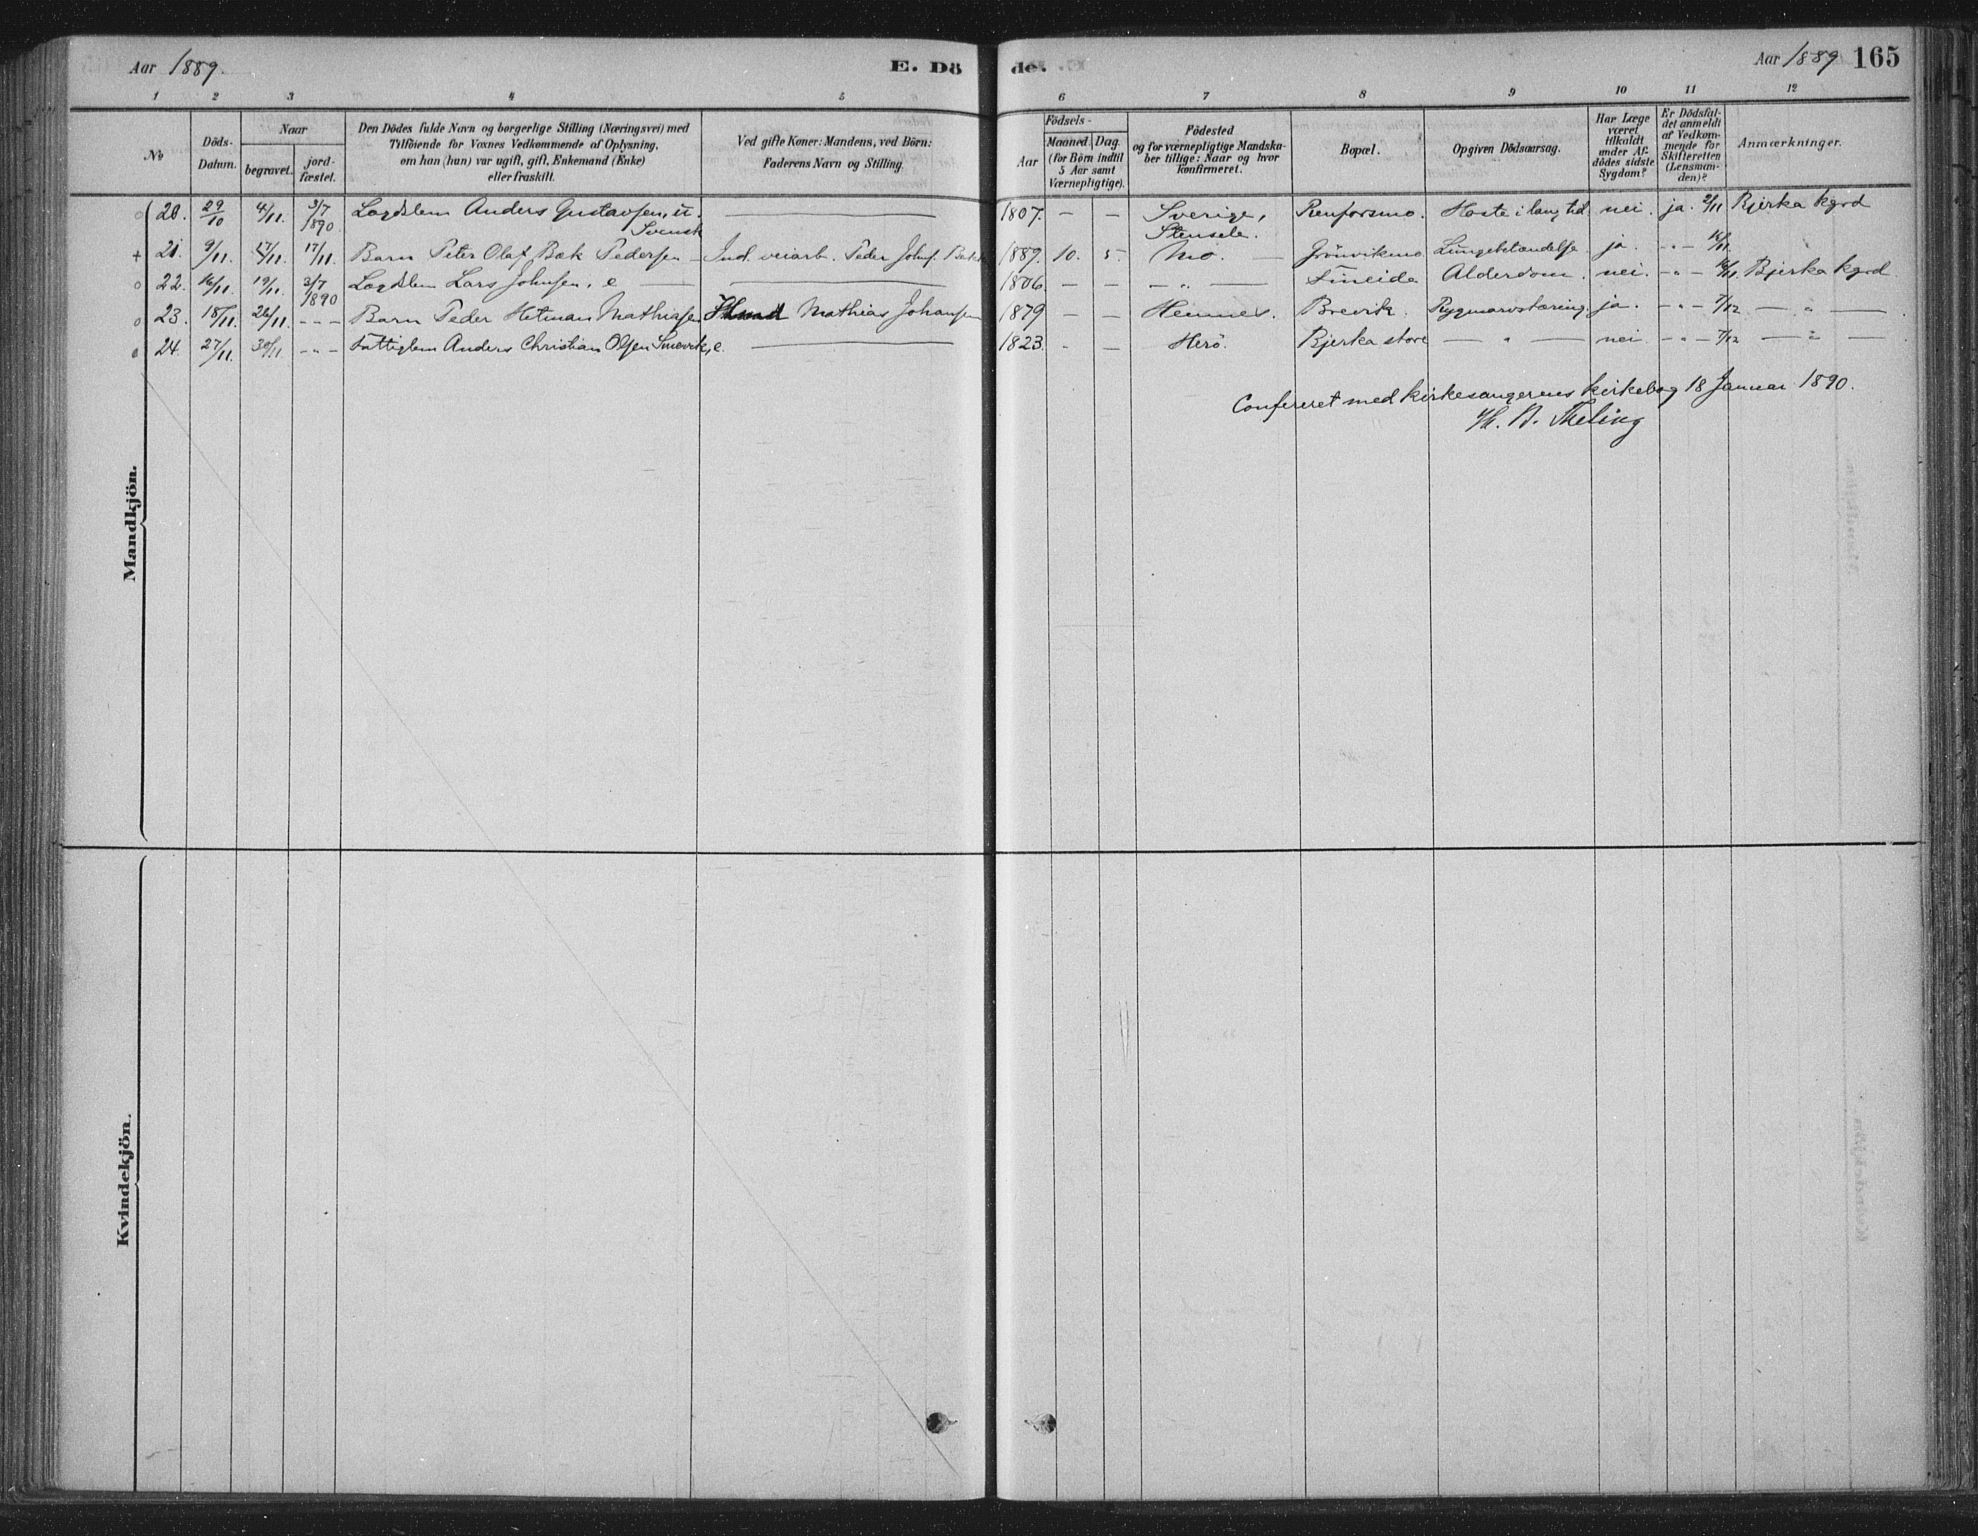 Aar 1889. E. Dö de. Aar 1889 165
1 2 3 4 5 6 7 8 9 10 11 12
No
Döds-
Datum.
Naar
begravet.
jord-
fæstet.
Den Dödes fulde Navn og borgerlige Stilling (Næringsvei) med
Tilföiende for Voxnes Vedkommende af Oplysning,
om han (hun) var ugift, gift, Enkemand (Enke)
eller fraskilt.
Ved gifte Koner: Mandens, ved Börn:
Faderens Navn og Stilling.
Födsels-
Aar
Maaned. Dag.
(for Börn indtil
5 Aar samt
Værnepligtige).
Födested
og for værnepligtige Mandska-
ber tillige: Naar og hvor
konfirmeret.
Bopæl.
Opgiven Dödsaarsag.
Har Læge
været
tilkaldt
under Af-
dödes sidste
Sygdom?
Er Dödsfal-
det anmeldt
af Vedkom-
mende for
Skifteretten
(Lensman-
den)?
Anmærkninger.
20. 29/10 4/11. 3/7 1890. Lægdslem Anders Gustavsen, u. Svensk — 1807. — — Sverige, Stensele. Renforsmo. Hoste i lang tid nei. ja. 2/11 Bjerka kgrd
21. 9/11. 17/11. 17/11. Barn Peter Olaf Bæk Pedersen — Ind. veiarb. Peder Johns. Bæk 1889. 10. 5. Mo. — Grönvikmo Lungebetændelse ja. -"- 16/11.
22. 16/11. 19/11. 3/7 1890 Lægdslem Lars Johnsen, e — 1806. — — — " — Smeide Alderdom. nei. -"- 18/11. Bjerka kgrd
23. 18/11. 26/11. - - - Barn Peder Hetman Mathiasen Husmd Mathias Johansen 1879 — — Hemnes. Brevik. Rygmarvstæring ja. -"- 7/12 — " —
24. 27/11. 30/11. -"- Fattiglem Anders Christian Olsen Smevik, e. — 1823. - — Herö. Bjerka store — " — nei. -"- 7/12 — " —
Confereret med kirkesangerens kirkebog 18 Januar 1890.
Mandkjön.
Kvindekjön.